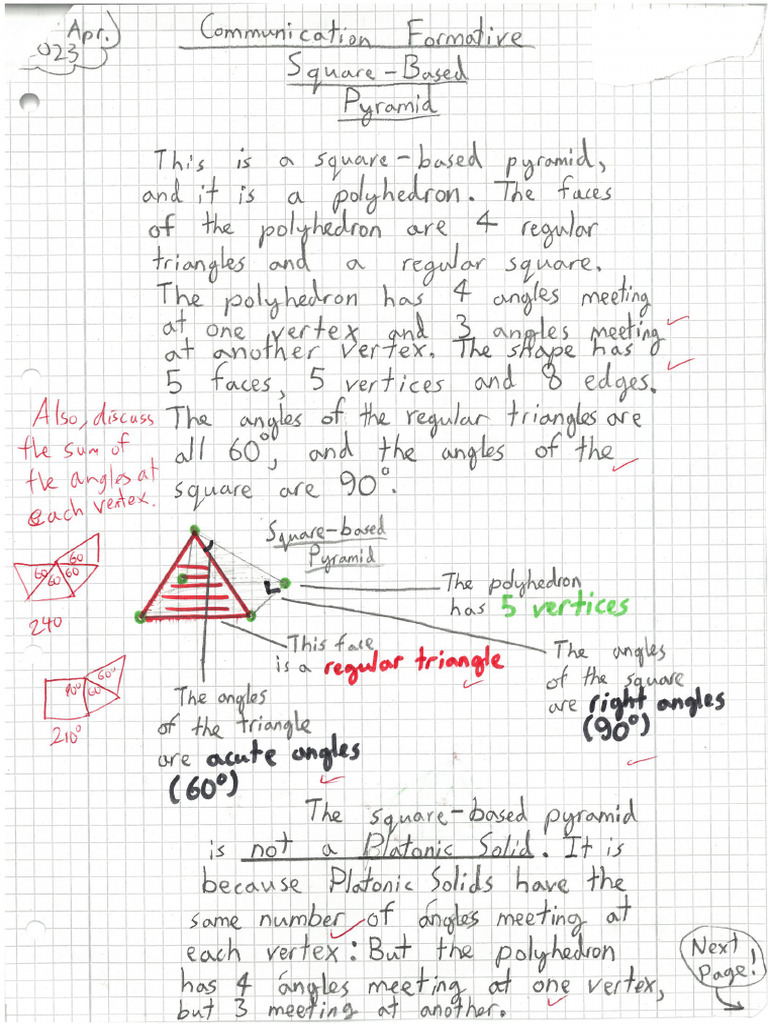 Apr.
023
Communication Formative
Square-Based
Pyramid
This is a square-based pyramid,
and it is a polyhedron. The faces
of the polyhedron are 4 regular
triangles and a regular square.
The polyhedron has 4 angles meeting
at one vertex and 3 angles meeting
at another vertex. The shape has
5 faces, 5 vertices and 8 edges.
The angles of the regular triangles are
all 60°, and the angles of the
square are 90°.
Also, discuss
the sum of
the angles at
each vertex.
60
60 60 60
240
90° 60° 60
210°
Square-based
Pyramid
The polyhedron
has 5 vertices
This face
is a regular triangle
The angles
of the square
are right angles
(90°)
The angles
of the triangle
are acute angles
(60°)
The square-based pyramid
is not a Platonic Solid. It is
because Platonic Solids have the
same number of angles meeting at
each vertex: But the polyhedron
has 4 angles meeting at one vertex,
but 3 meeting at another.
Next
Page!